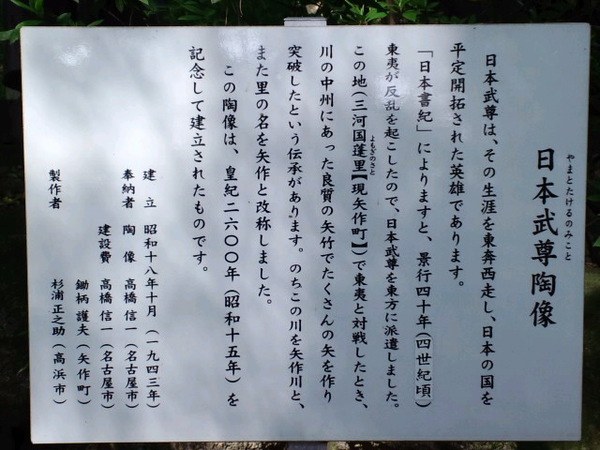 やまとたけるのみこと
日本武尊陶像
日本武尊は、その生涯を東奔西走し、日本の国を
平定開拓された英雄であります。
「日本書紀」によりますと、景行四十年(四世紀頃)
東夷が反乱を起こしたので、日本武尊を東方に派遣しました。
この地(三河国蓬里【現矢作町】)で東夷と対戦したとき、
よもぎのさと
川の中州にあった良質の矢竹でたくさんの矢を作り
突破したという伝承があります。のちこの川を矢作川と、
また里の名を矢作と改称しました。
この陶像は、皇紀二六〇〇年(昭和十五年)を
記念して建立されたものです。
建立 昭和十八年十月(一九四三年)
奉納者 陶像 高橋信一(名古屋市)
建設費 高橋信一(名古屋市)
鋤柄護夫(矢作町)
製作者 杉浦正之助(高浜市)